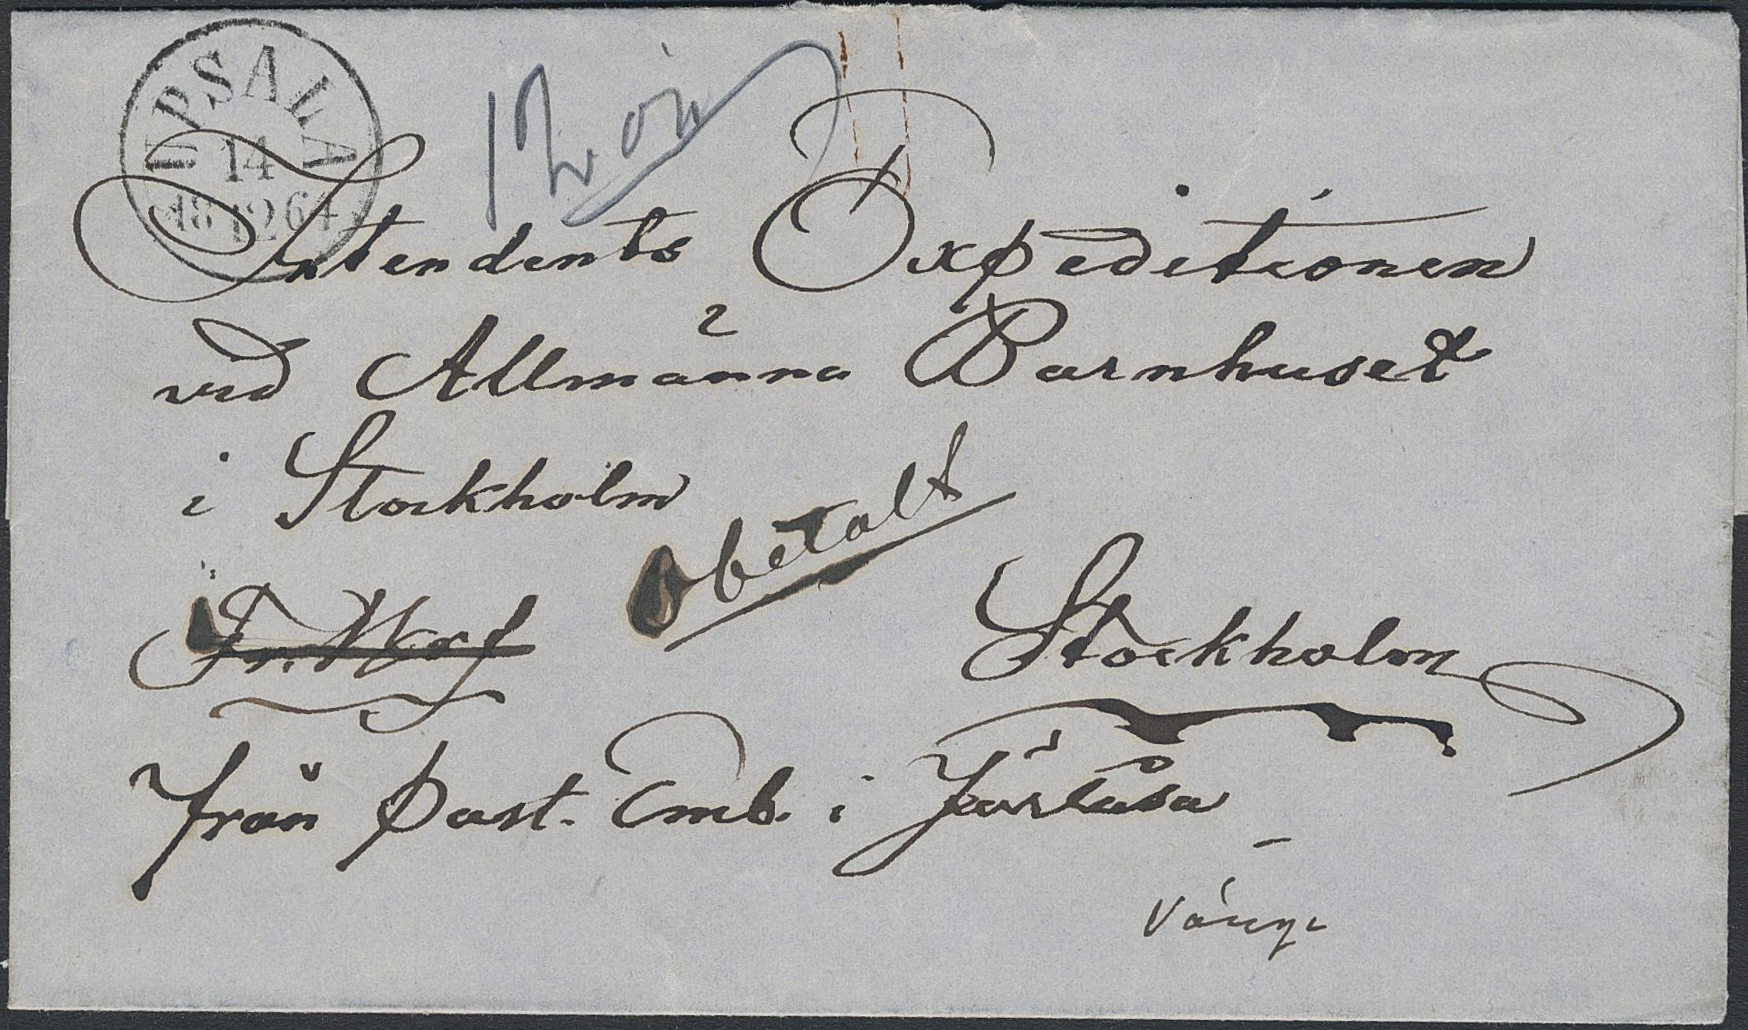 UPSALA
14
12 1864
12 öre
Intendents Expeditionen
vid Allmänna Barnhuset
i Stockholm
Obetalt
Fr. Wrf
Stockholm
från Past. Emb. i Järlåsa